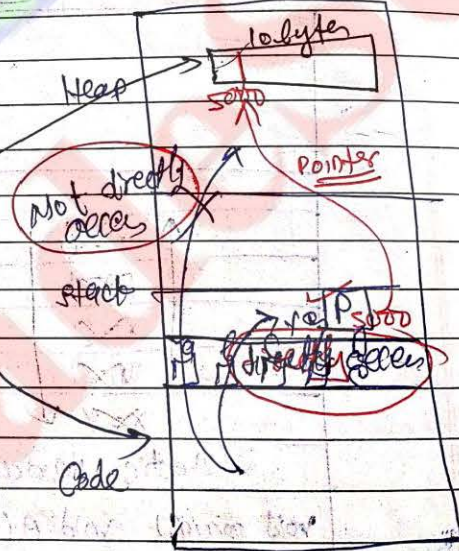 10 bytes
Heap
5000
Pointer
Not directly
access
stack
P 5000
directly access
Code
void